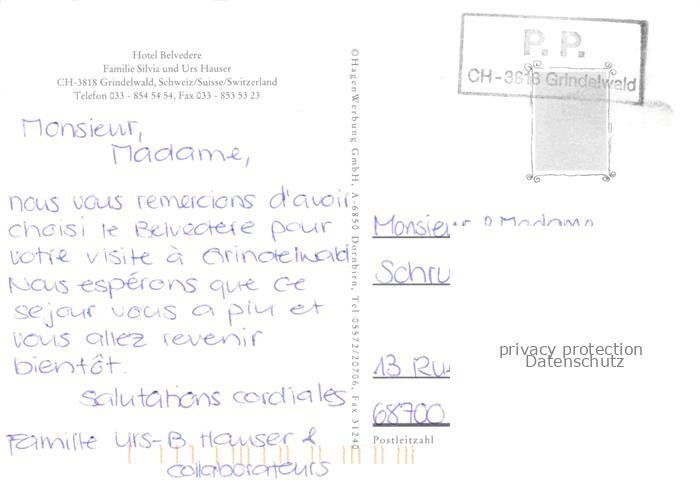 Hotel Belvedere
Familie Silvia und Urs Hauser
CH-3818 Grindelwald, Schweiz/Suisse/Switzerland
Telefon 033 - 854 54 54, Fax 033 - 853 53 23
Monsieur,
Madame,
nous vous remercions d'avoir
choisi le Belvedere pour
votre visite à Grindelwald
Nous espérons que ce
sejour vous a plu et
vous allez revenir
bientôt.
Salutations cordiales
Famille Urs-B. Hauser &
collaborateurs
©HagenWerbung GmbH, A-6850 Dornbirn, Tel 05572/20706, Fax 31240
P. P.
CH-3818 Grindelwald
Monsieur Madame
Schru
13 Ru
68700
Postleitzahl
privacy protection
Datenschutz